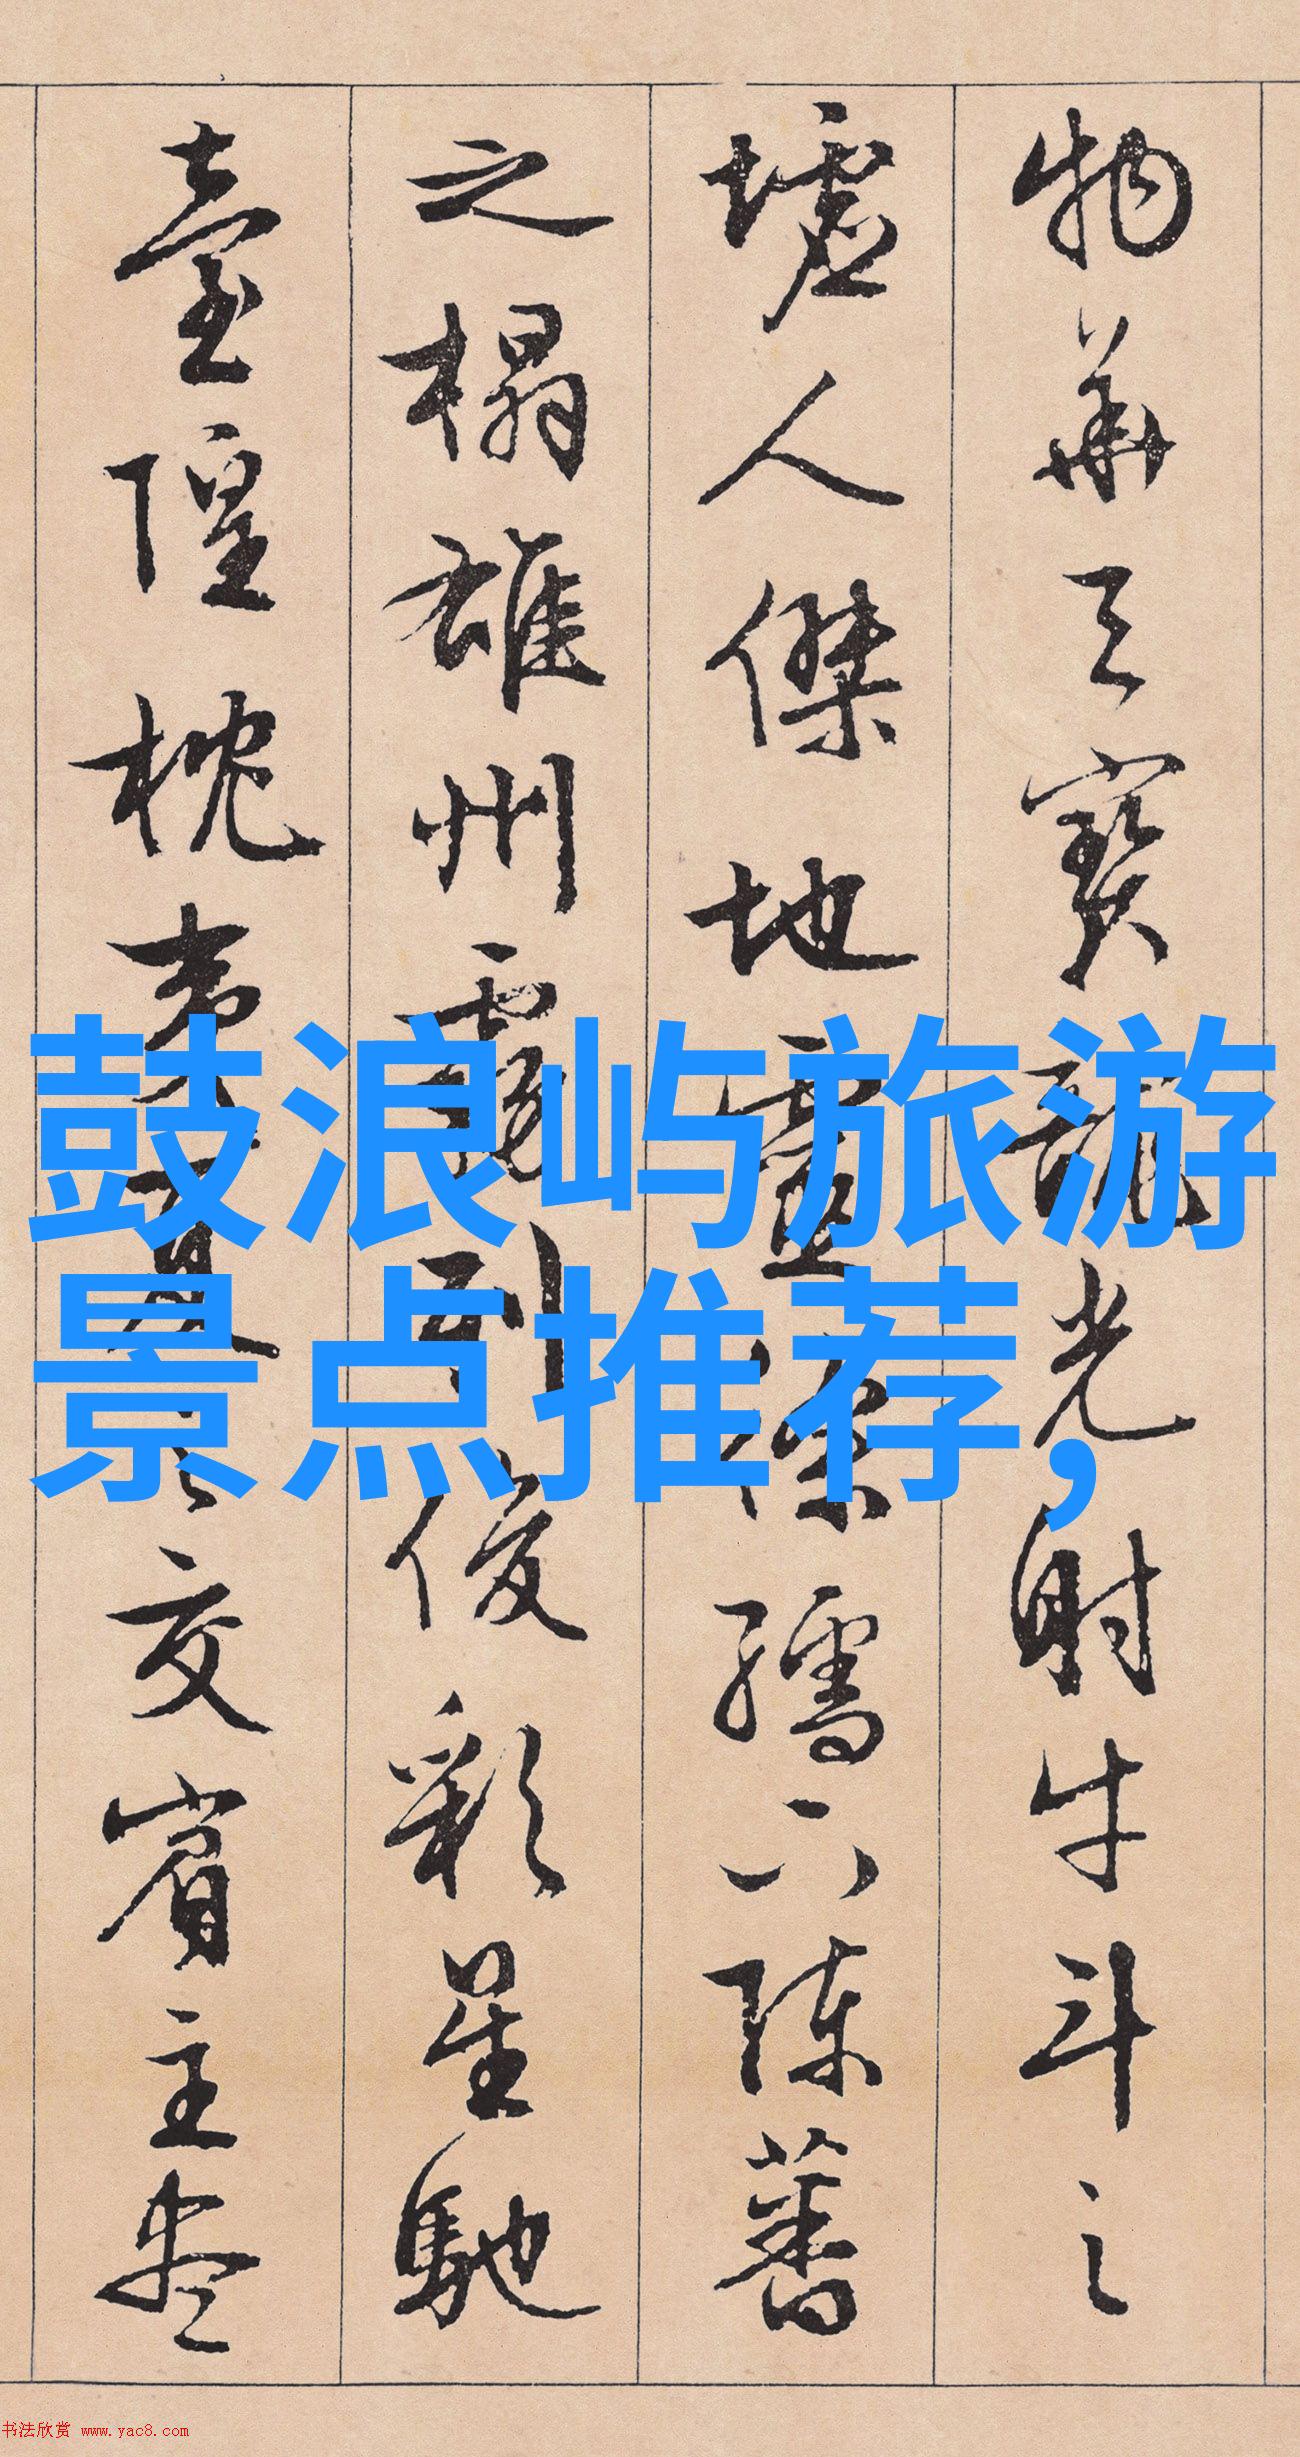 物華天寶龍光射牛斗之
墟人傑地靈徐孺下陳蕃
之榻雄州霧列俊彩星馳
臺隍枕夷夏之交賓主盡
鼓浪屿旅游
景点推荐,
书法欣赏 www.yac8.com